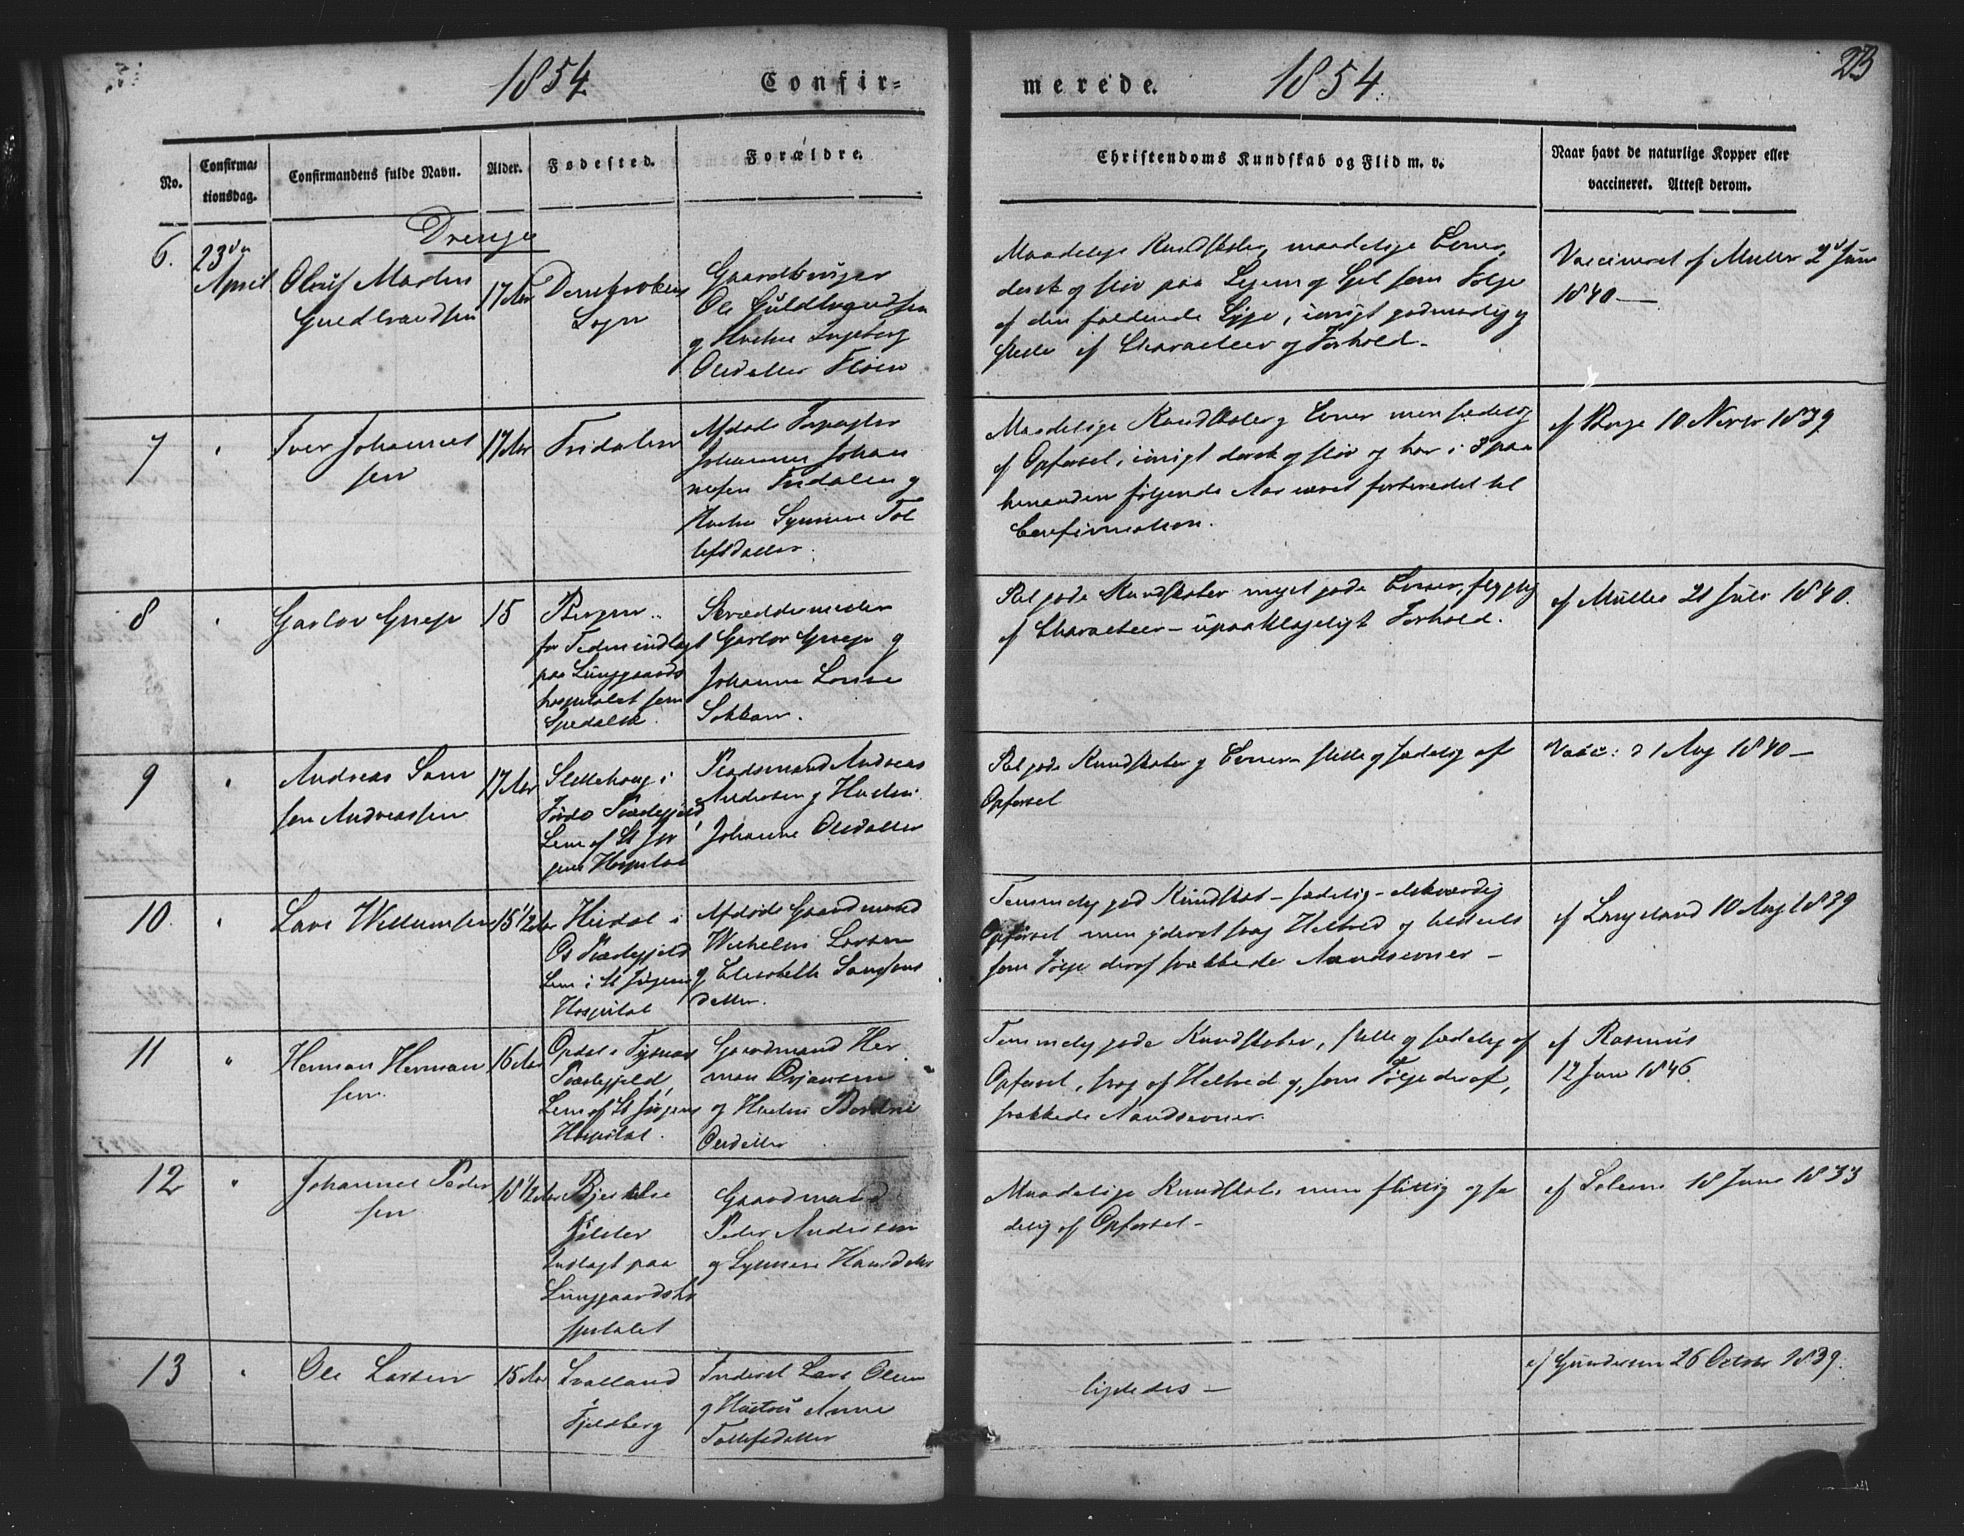 1854 Confir=
merede. 1854.
23
No.
Confirma=
tionsdag.
Confirmandens fulde Navn.
Alder.
Fødested.
Forældre.
Christendoms Kundskab og Flid m. v.
Naar havt de naturlige Kopper eller
vaccineret. Attest derom.
Drenge
6.
23de
April
Oluf Martin
Guldbrandsen
17 Aar
Domkirkens
Sogn
Gaardbruger
Ole Guldbrandsen
og Hustru Ingeborg
Olsdatter Fløen
Maadelige Kundskaber, maadelige Evner,
dorsk og sløv paa Legem og Sjel som Følge
af den faldende Syge, iøvrigt godmodig og
stille af Characteer og Forhold.
Vaccineret af Müller 2d Juni
1840 —
7
"
Iver Johannes
sen
17 Aar
Fridalen
Afdøde
Johannes Johan
nesen Fridalen og
Hustru Synneve Tol
lefsdatter.
Maadelige Kundskaber og Evner men sædelig
af Opførsel, iøvrigt dorsk og sløv og har i 3 paa
hinanden følgende Aar været forberedet til
Confirmation.
af Berge 10 Novbr 1839
8
"
Garlov Griep
15
Bergen
for Tiden indlagt
paa Lunggaards
hospitalet som
Spedalsk.
Skræddermester
Garlov Griep og
Johanne Lovise
Sokkan.
Ret gode Kundskaber meget gode Evner, flygtig
af Characteer – upaaklageligt Forhold.
af Müller 21 Juli 1840.
9
"
Andreas Sam
sen Andreassen
17 Aar
Slettehoug i
Førde Præstegjeld,
Lem af St Jør
gens Hospital
Pladsmand Andreas
Andersen og Hustru
Johanne Olsdatter
Ret gode Kundskaber og Evner stille og sædelig af
Opførsel
Vacc: d 1 Aug 1840 —
10.
"
Lars Willumsen
15 1/2 Aar
Heidal i
Os Præstegjeld
Lem i St Jørgens
Hospital
Afdøde Gaardmand
Wilhelm Larsen
og Elisabeth Samsons
datter.
Temmelig god Kundskab – sædelig – elskværdig
Opførsel men yderst svag Helbred og tildeels
som Følge deraf svækkede Aandsevner —
af Langeland 10 Aug 1839
11
"
Herman Herman
sen
16 Aar
Opdal i Tysnæs
Præstegjeld,
Lem af St Jørgens
Hospital.
Gaardmand Her
man Ørjansen
og Hustru
Olsdatter
Temmelig gode Kundskaber, stille og sædelig af
Opførsel, svag af Helbred og, som Følge deraf,
svækkede Aandsevner.
af Rasmus
12 Juni 1846.
12
"
Johannes Peder
sen
18 1/2 Aar
Jølster
Indlagt paa
Lunggaardsho
spitalet
Gaardmand
Peder Andersen
og Synneve Hansdatter
Maadelige Kundskaber men flittig og sæ
delig af Opførsel –
af Solem 18 Juni 1833
13
"
Ole Larsen
15 Aar
Svalland
i
Fjeldberg
Inderst Lars Olsen
og Hustru Anne
Tollefsdatter
ligeledes —
af Gundersen 26 Octobr 1839.